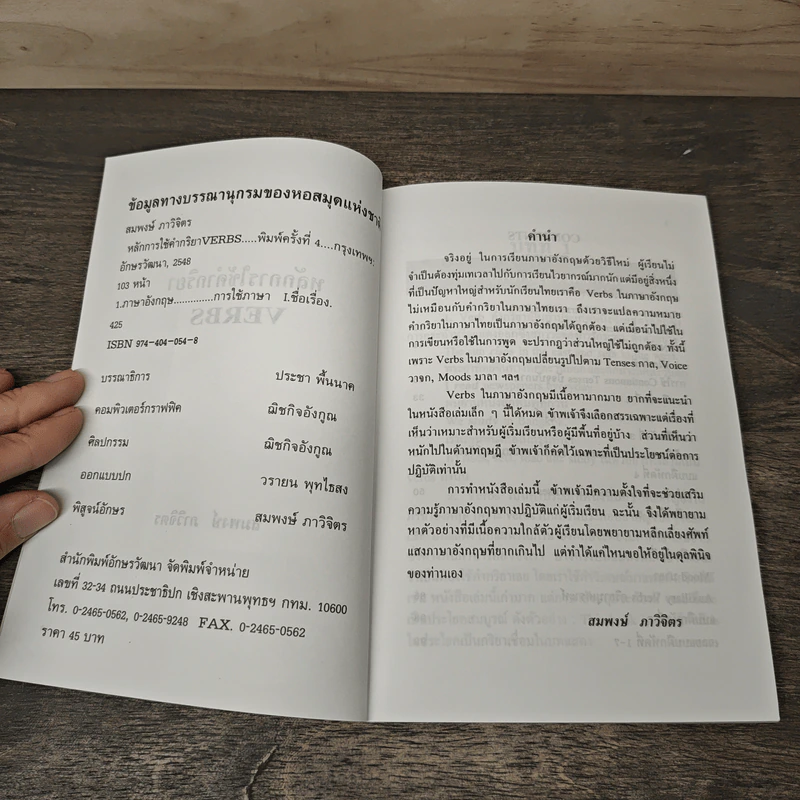 ข้อมูลทางบรรณานุกรมของหอสมุดแห่งชาติ
สมพงษ์ ภาวิจิตร
หลักการใช้คำกริยาVERBS.....พิมพ์ครั้งที่ 4....กรุงเทพฯ:
อักษรวัฒนา, 2548
103 หน้า
1.ภาษาอังกฤษ.............การใช้ภาษา I.ชื่อเรื่อง.
425
ISBN 974-404-054-8
บรรณาธิการ ประชา พื้นนาค
คอมพิวเตอร์กราฟฟิค ฌิชกิจอังกูณ
ศิลปกรรม ฌิชกิจอังกูณ
ออกแบบปก วรายน พุทไธสง
พิสูจน์อักษร สมพงษ์ ภาวิจิตร
สำนักพิมพ์อักษรวัฒนา จัดพิมพ์จำหน่าย
เลขที่ 32-34 ถนนประชาธิปก เชิงสะพานพุทธฯ กทม. 10600
โทร. 0-2465-0562, 0-2465-9248 FAX. 0-2465-0562
ราคา 45 บาท
คำนำ
จริงอยู่ ในการเรียนภาษาอังกฤษด้วยวิธีใหม่ ผู้เรียนไม่
จำเป็นต้องทุ่มเทเวลาไปกับการเรียนไวยากรณ์มากนัก แต่มีอยู่สิ่งหนึ่ง
ที่เป็นปัญหาใหญ่สำหรับนักเรียนไทยเราคือ Verbs ในภาษาอังกฤษ
ไม่เหมือนกับคำกริยาในภาษาไทยเรา ถึงเราจะแปลความหมาย
คำกริยาในภาษาไทยเป็นภาษาอังกฤษได้ถูกต้อง แต่เมื่อนำไปใช้ใน
การเขียนหรือใช้ในการพูด จะปรากฏว่าส่วนใหญ่ใช้ไม่ถูกต้อง ทั้งนี้
เพราะ Verbs ในภาษาอังกฤษเปลี่ยนรูปไปตาม Tenses กาล, Voice
วาจก, Moods มาลา ฯลฯ
Verbs ในภาษาอังกฤษมีเนื้อหามากมาย ยากที่จะแนะนำ
ในหนังสือเล่มเล็ก ๆ นี้ได้หมด ข้าพเจ้าจึงเลือกสรรเฉพาะแต่เรื่องที่
เห็นว่าเหมาะสำหรับผู้เริ่มเรียนหรือผู้มีพื้นที่อยู่บ้าง ส่วนที่เห็นว่า
หนักไปในด้านทฤษฎี ข้าพเจ้าก็คัดไว้เฉพาะที่เป็นประโยชน์ต่อการ
ปฏิบัติเท่านั้น
การทำหนังสือเล่มนี้ ข้าพเจ้ามีความตั้งใจที่จะช่วยเสริม
ความรู้ภาษาอังกฤษทางปฏิบัติแก่ผู้เริ่มเรียน ฉะนั้น จึงได้พยายาม
หาตัวอย่างที่มีเนื้อความใกล้ตัวผู้เรียนโดยพยายามหลีกเลี่ยงศัพท์
แสงภาษาอังกฤษที่ยากเกินไป แต่ทำได้แค่ไหนขอให้อยู่ในดุลพินิจ
ของท่านเอง
สมพงษ์ ภาวิจิตร